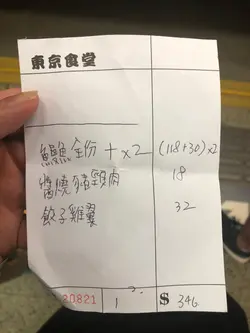 東京食堂
鰻魚全份 + x2 (118+30)x2
醬燒豬頸肉 18
餃子雞翼 32
20821 1 $ 346